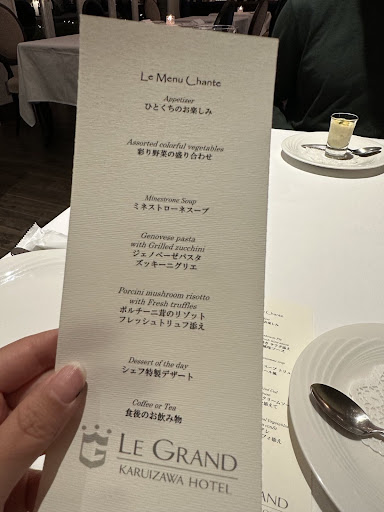 Le Menu Chante
Appetizer
ひとくちのお楽しみ
Assorted colorful vegetables
彩り野菜の盛り合わせ
Minestrone Soup
ミネストローネスープ
Genovese pasta
with Grilled zucchini
ジェノベーゼパスタ
ズッキーニグリエ
Porcini mushroom risotto
with Fresh truffles
ポルチーニ茸のリゾット
フレッシュトリュフ添え
Dessert of the day
シェフ特製デザート
Coffee or Tea
食後のお飲み物
LE GRAND
KARUIZAWA HOTEL